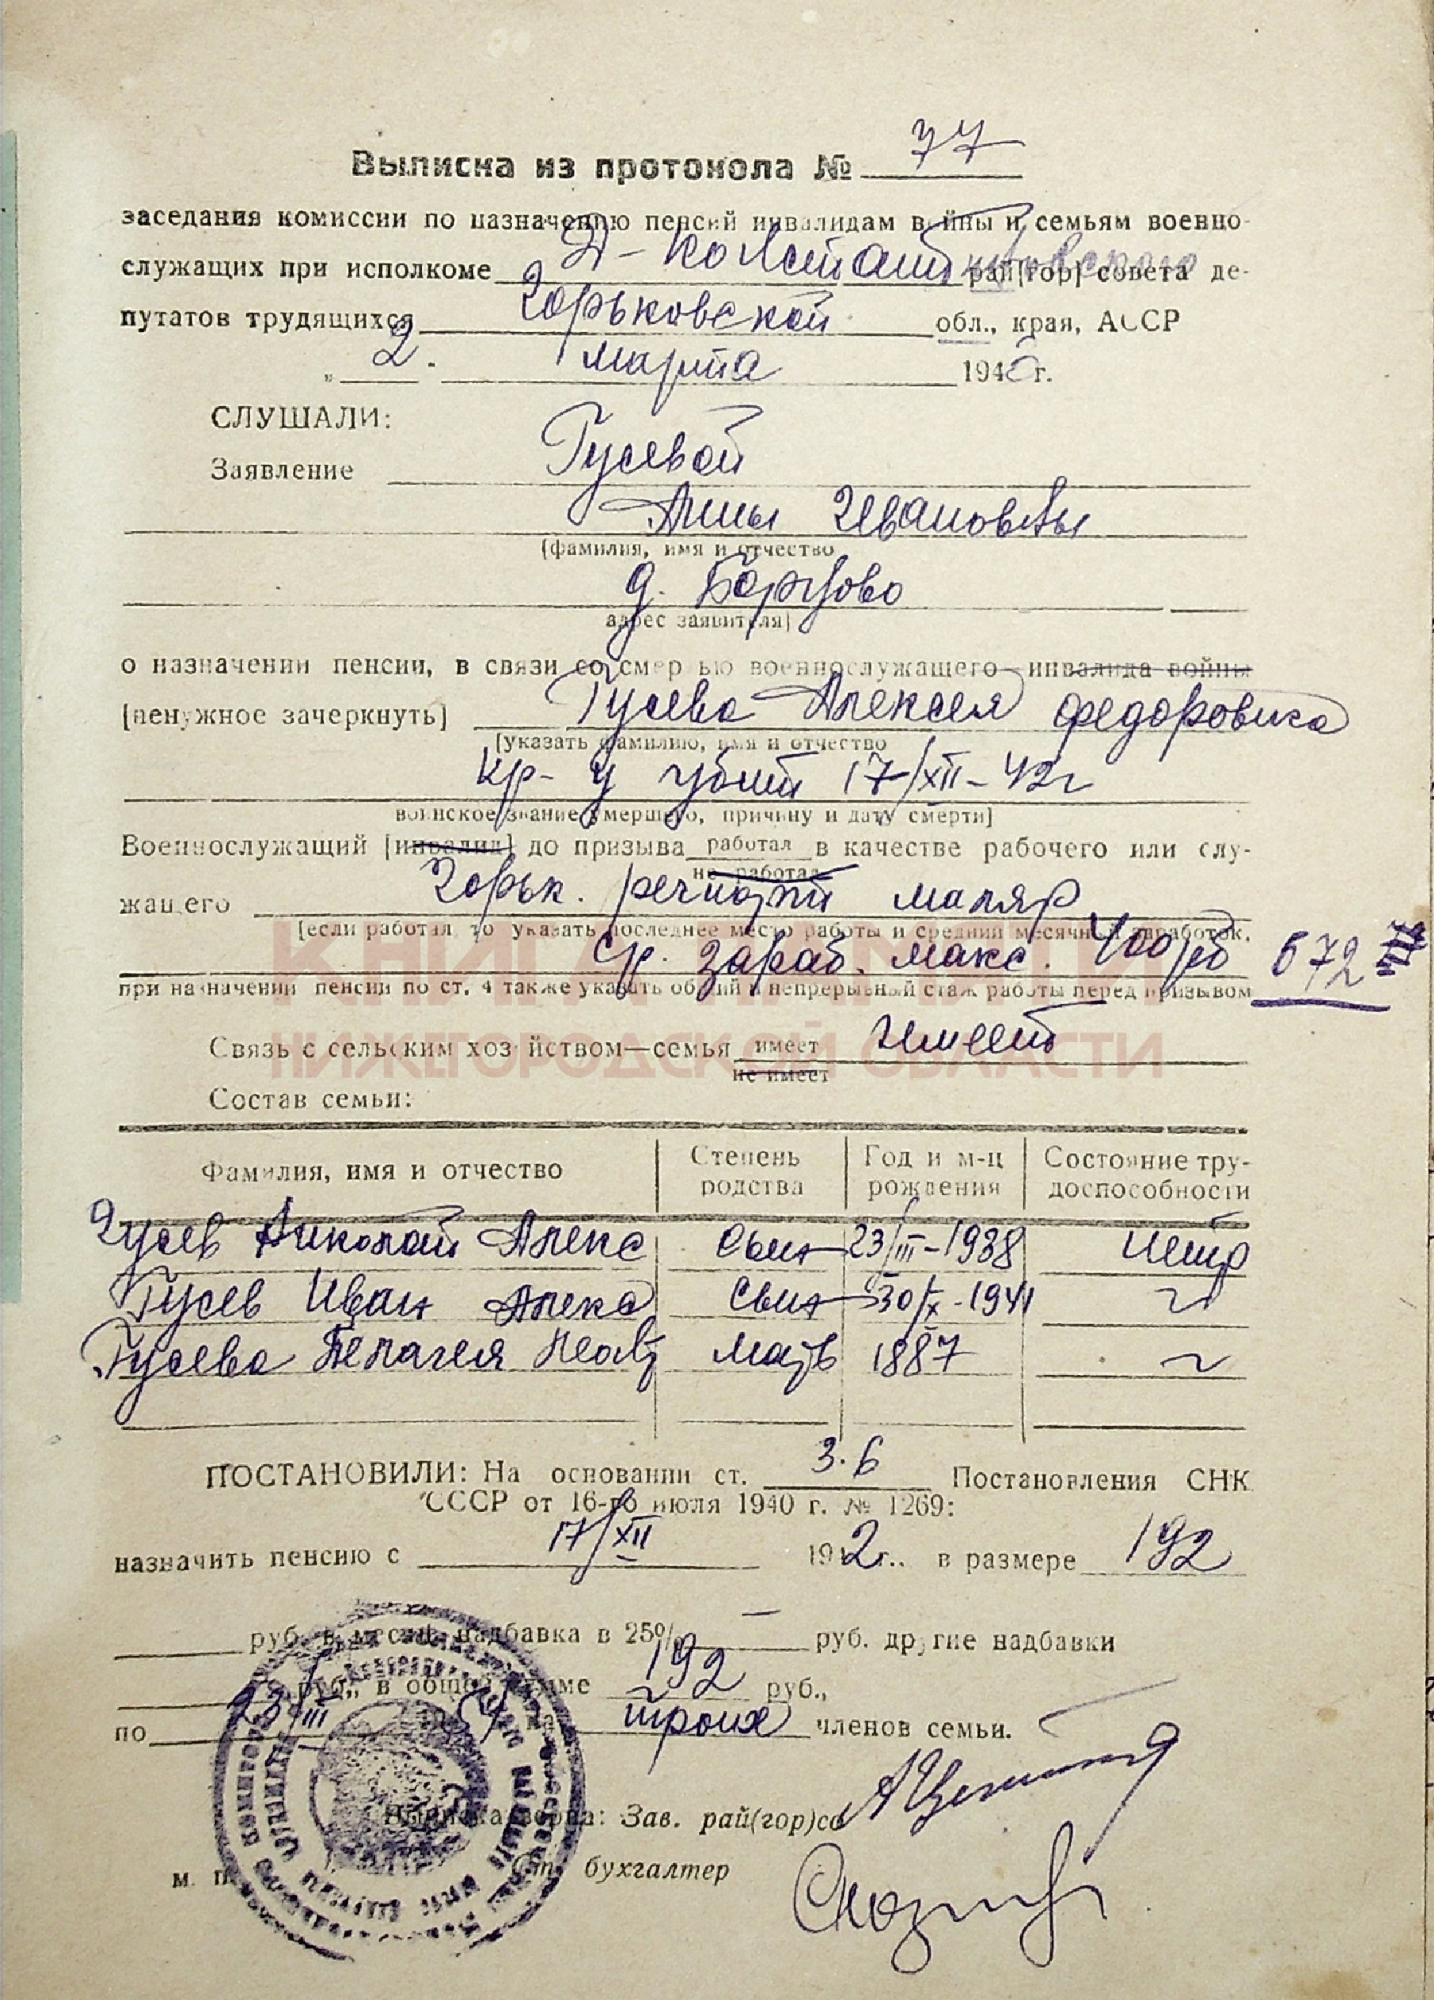 Выписка из протокола № 77
заседания комиссии по назначению пенсий инвалидам войны и семьям военно-
служащих при исполкоме Д-Константиновского рай[гор] совета де-
путатов трудящихся Горьковской обл., края, АССР
„ 2. марта 194 г.
СЛУШАЛИ:
Заявление Гусевой
Анны Ивановны
[фамилия, имя и отчество
д. Борцово
адрес заявителя]
о назначении пенсии, в связи со смертью военнослужащего инвалида войны
[ненужное зачеркнуть] Гусева Алексея Федоровича
[указать фамилию, имя и отчество
кр-ц убит 17/XII-42г
воинское звание умершего, причину и дату смерти]
Военнослужащий [инвалид] до призыва работал в качестве рабочего или слу-
не работал
жащего Горьк. речпорт маляр
[если работал то указать последнее место работы и средний месячный заработок,
ср. зараб. макс. 400руб 672
при назначении пенсии по ст. 4 также указать общий и непрерывный стаж работы перед призывом
КНИГА ПАМЯТИ
НИЖЕГОРОДСКОЙ ОБЛАСТИ
Связь с сельским хозяйством—семья имеет имеет
не имеет
Состав семьи:
Фамилия, имя и отчество Степень родства Год и м-ц рождения Состояние тру-доспособности
Гусев Николай Алекс сын 23/III-1938 нетр
Гусев Иван Алекс сын 30/X-1941 ~
Гусева Пелагея мать 1887 ~
ПОСТАНОВИЛИ: На основании ст. 3.6 Постановления СНК
СССР от 16-го июля 1940 г. № 1269:
назначить пенсию с 17/XII 1942г.. в размере 192
руб. в месяц, надбавка в 25% — руб. другие надбавки
руб., в общей сумме 192 руб.,
по 23/III 54 на троих членов семьи.
Выписка верна: Зав. рай(гор)со
м. п. Ст. бухгалтер